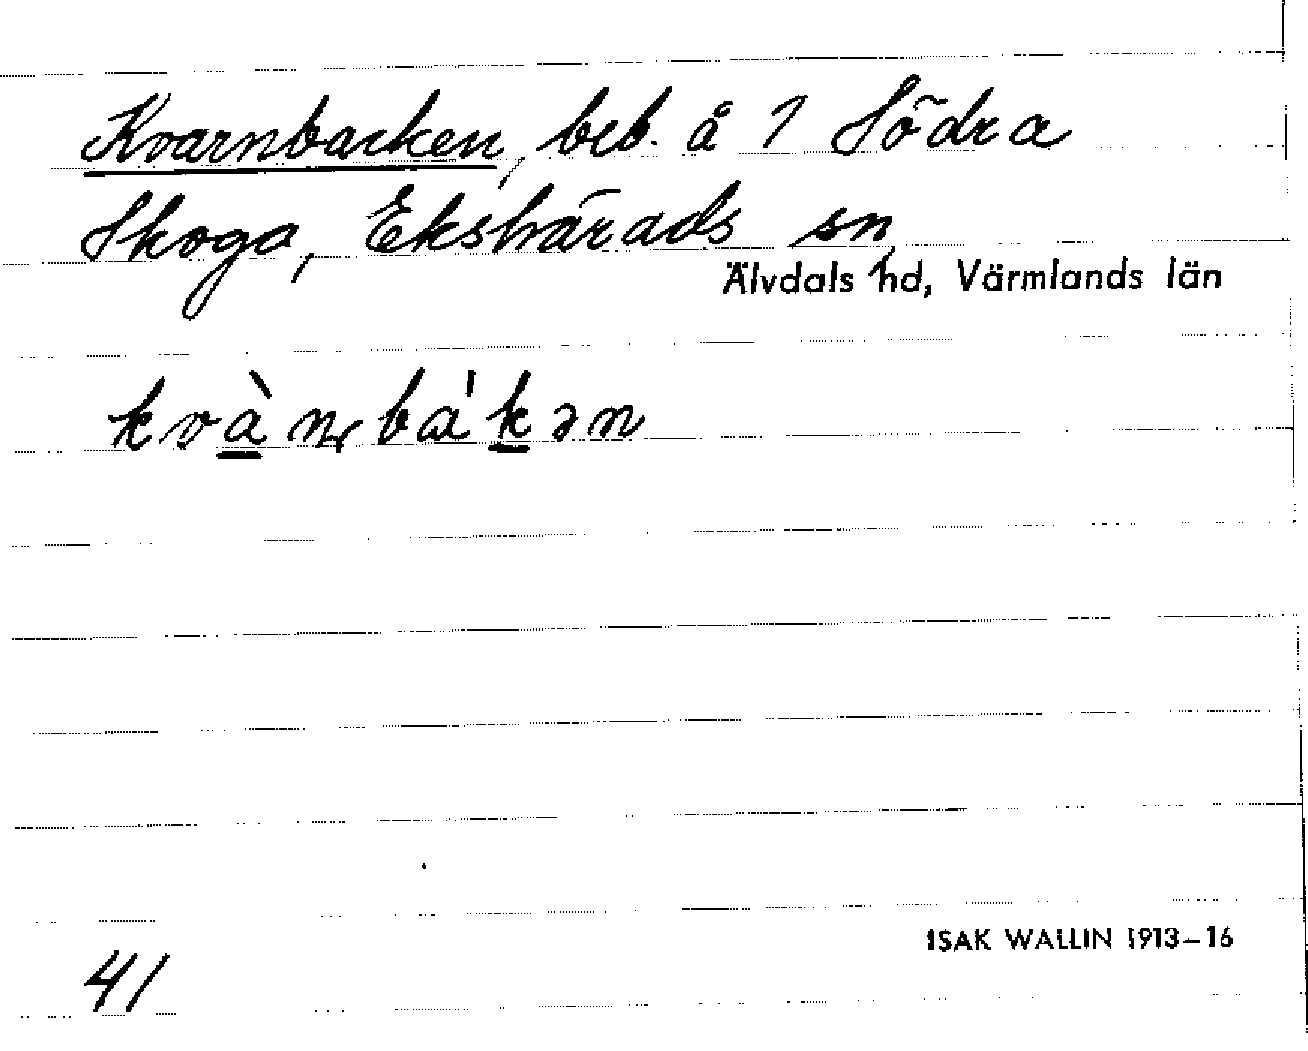 Kvarnbacken, beb. å 1 Södra
Skoga, Ekshärads sn,
Älvdals hd, Värmlands län
kvànbákən
ISAK WALLIN 1913–16
41